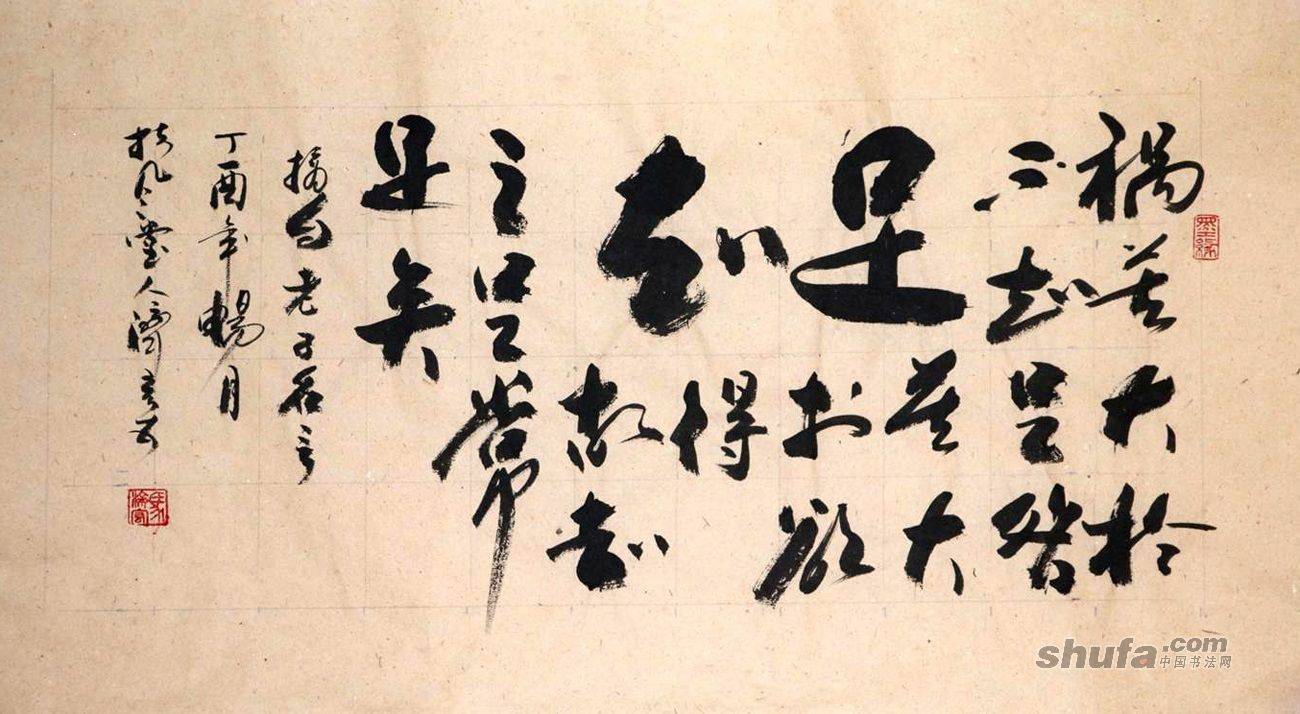 祸莫大於
不知足咎
足
莫大
於欲
知
得
故知
之足常
足矣
摘句老子名言
丁酉年暢月
扶风堂人
shufa.com
中国书法网